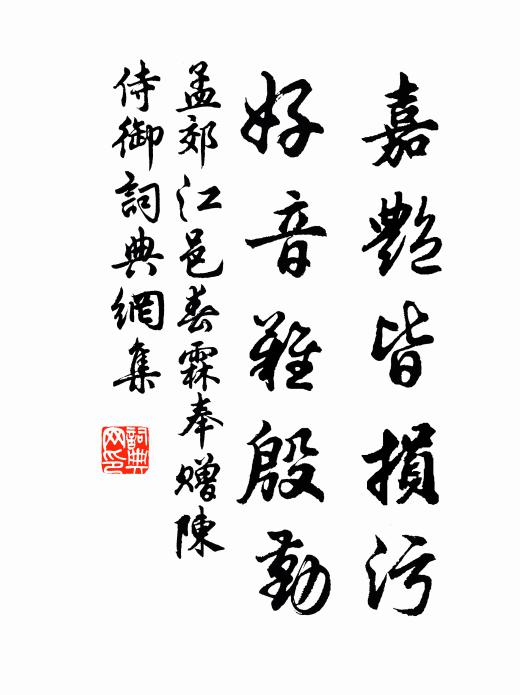 嘉艷皆損污
好音難殷勤
孟郊江邑春霖奉贈陳
侍御詞典網集
詞典
网印